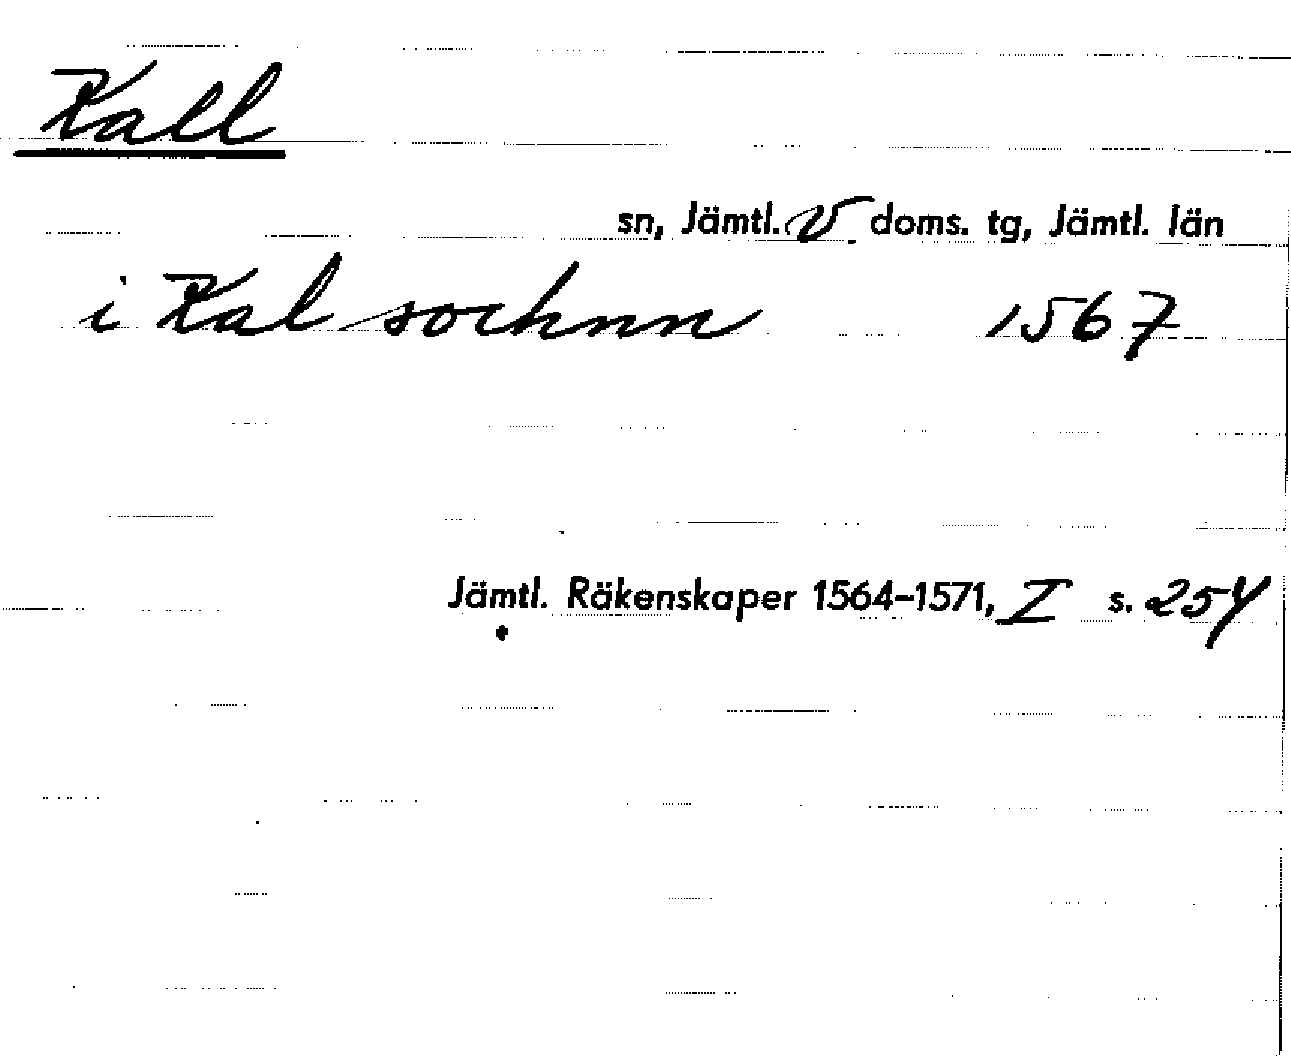 Kall
sn, Jämtl. V doms. tg, Jämtl. län
i Kal sochnn 1567
Jämtl. Räkenskaper 1564–1571, I s. 254